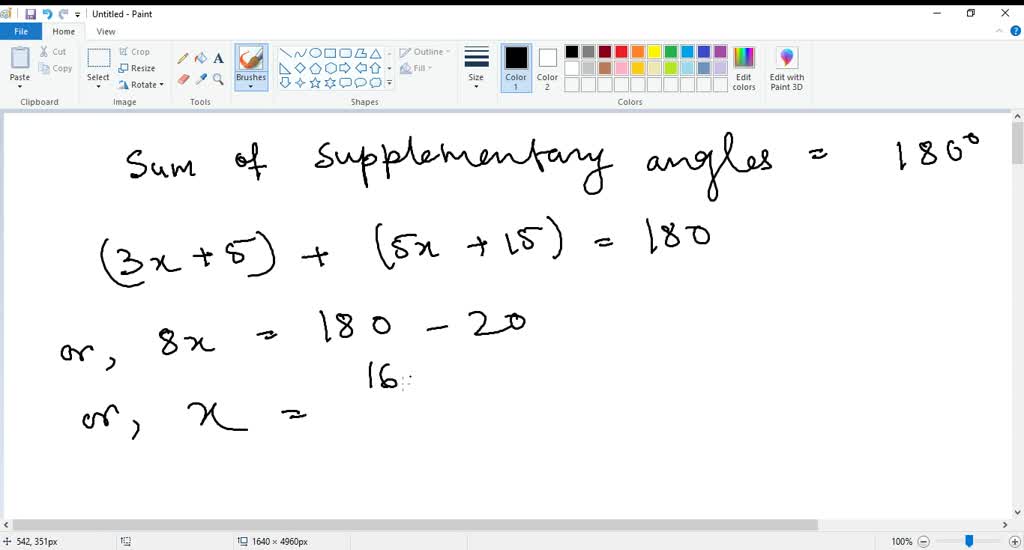 Untitled - Paint
File Home View
Paste Cut Copy Clipboard
Select Crop Resize Rotate Image
Tools
Brushes
Shapes Outline Fill
Size
Color 1 Color 2 Colors
Edit colors Edit with Paint 3D
Sum of supplementary angles = 180°
(3x + 5) + (5x + 15) = 180
or, 8x = 180 - 20
16
or, x =
542, 351px 1640 × 4960px 100%